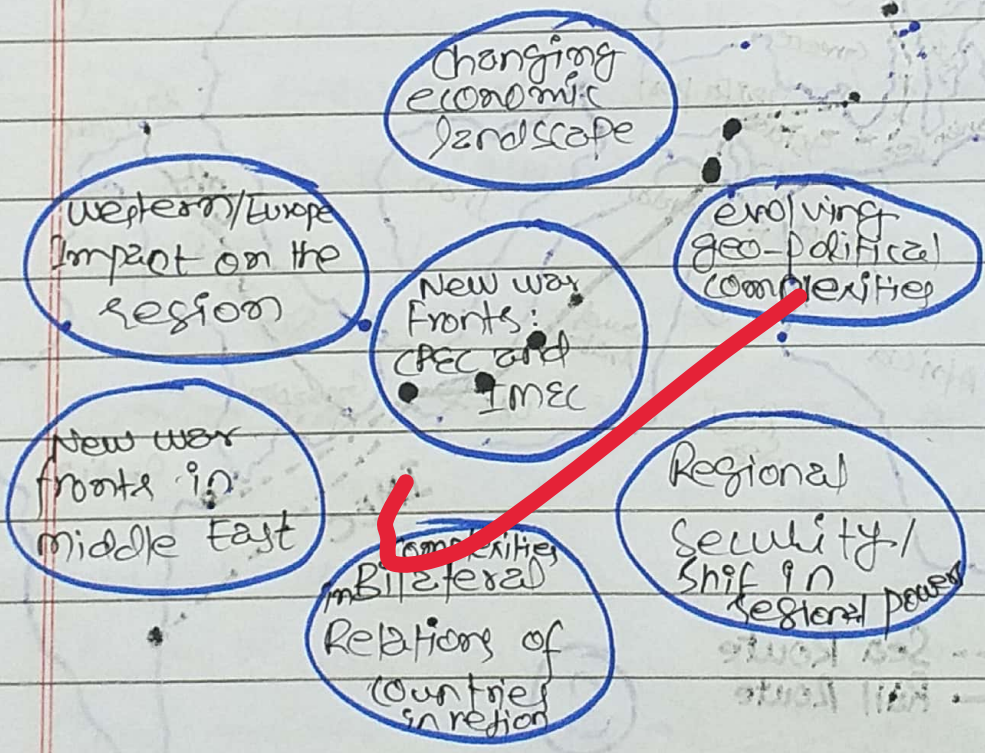 Changing
economic
landscape
Western/Europe
Impact on the
region
New war
fronts:
CPEC and
IMEC
evolving
geo-political
complexities
New war
fronts in
middle East
complexities
in Bilateral
Relations of
countries
in region
Regional
Security/
Shif in
regional power
- Sea Route
- Rail Route